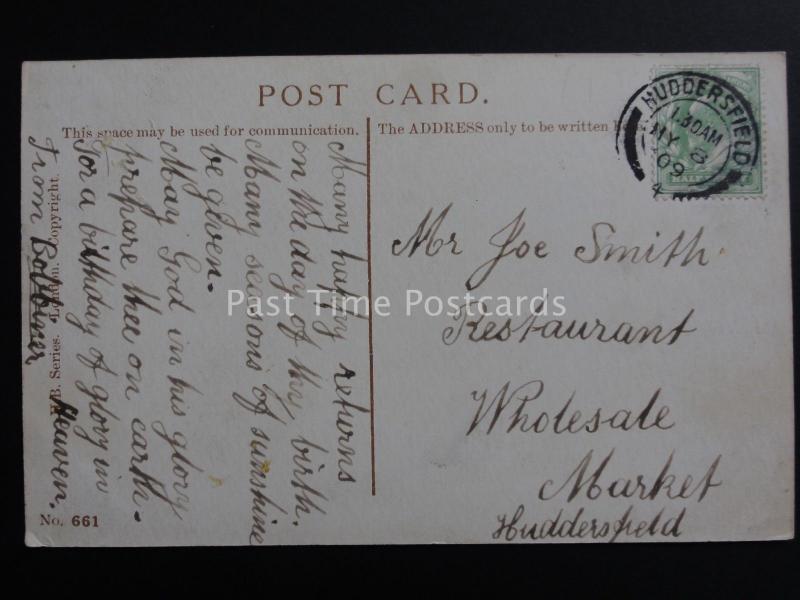 POST CARD.
This space may be used for communication.
The ADDRESS only to be written
HUDDERSFIELD
1.30AM
MY 3
09
4
Many happy returns
on the day of thy birth.
Many seasons of sunshine
be given.
May God in his glory
prepare thee on earth.
For a birthday of glory in
Heaven.
From
Mr Joe Smith.
Restaurant
Wholesale
Market
Huddersfield
Past Time Postcards
Series. London. Copyright.
No. 661